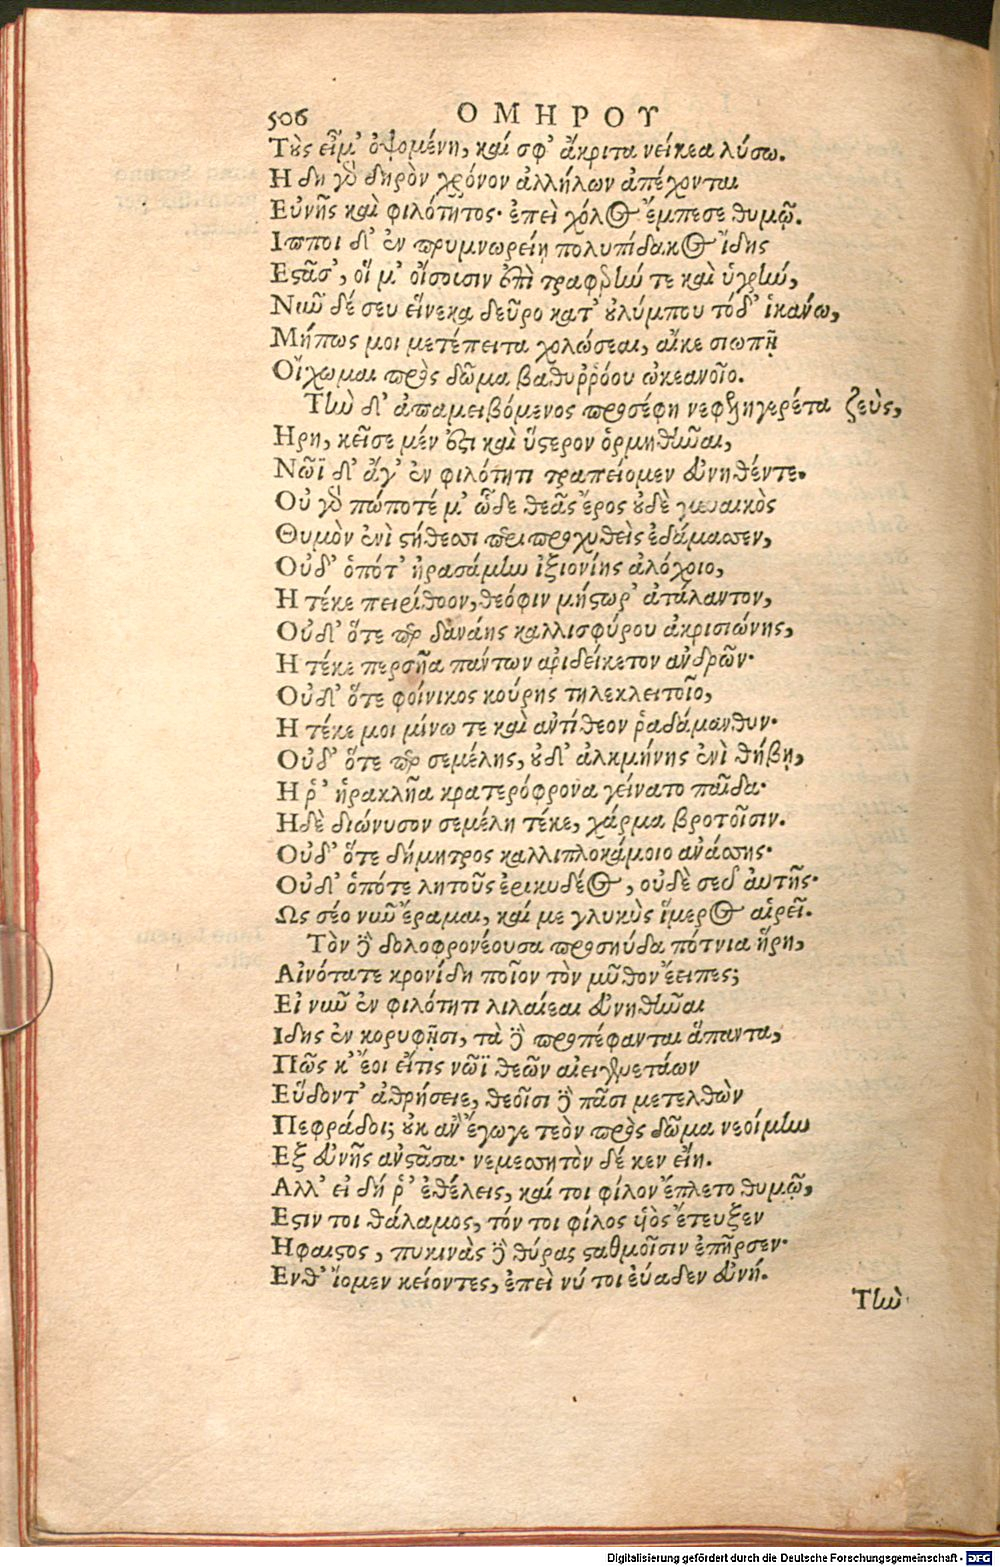 506 ΟΜΗΡΟΥ
Τοὺς εἶμ' ὀψομένη, καί σφ' ἄκριτα νείκεα λύσω.
Η δη γὰρ δηρὸν χρόνον ἀλλήλων ἀπέχονται
Εὐνῆς καὶ φιλότητος· ἐπεὶ χόλος ἔμπεσε θυμῷ.
Ιπποι δ' ἐν πρυμνωρείῃ πολυπίδακος ἴδης
Εςᾶσ', οἵ μ' οἴσουσιν ἐπὶ τραφερὴν τε καὶ ὑγρὴν,
Νῦν δέ σευ εἵνεκα δεῦρο κατ' οὐλύμπου τόδ' ἱκάνω,
Μήπως μοι μετέπειτα χολώσεαι, αἴκε σιωπῇ
Οἴχωμαι πρὸς δῶμα βαθυῤῥόου ὠκεανοῖο.
Τὴν δ' ἀπαμειβόμενος προσέφη νεφεληγερέτα ζεὺς,
Ηρη, κεῖσε μέν ἐστι καὶ ὕςερον ὁρμηθῆναι,
Νῶϊ δ' ἄγ' ἐν φιλότητι τραπείομεν εὐνηθέντε.
Οὐ γὰρ πώποτέ μ' ὧδε θεᾶς ἔρος οὐδὲ γυναικὸς
Θυμὸν ἐνὶ ςήθεσσι περιπροχυθεὶς ἐδάμασσεν,
Οὐδ' ὁπότ' ἠρασάμην ἰξιονίης ἀλόχοιο,
Η τέκε πειρίθοον, θεόφιν μήςωρ' ἀτάλαντον,
Οὐδ' ὅτε περ δανάης καλλισφύρου ἀκρισιώνης,
Η τέκε περσῆα πάντων ἀριδείκετον ἀνδρῶν·
Οὐδ' ὅτε φοίνικος κούρης τηλεκλειτοῖο,
Η τέκε μοι μίνω τε καὶ ἀντίθεον ῥαδάμανθυν·
Οὐδ' ὅτε περ σεμέλης, οὐδ' ἀλκμήνης ἐνὶ θήβῃ,
Η ῥ' ἡρακλῆα κρατερόφρονα γείνατο παῖδα·
Ηδὲ διώνυσον σεμέλη τέκε, χάρμα βροτοῖσιν.
Οὐδ' ὅτε δήμητρος καλλιπλοκάμοιο ἀνάσσης·
Οὐδ' ὁπότε λητοῦς ἐρικυδέος, οὐδὲ σεῦ αὐτῆς·
Ως σέο νῦν ἔραμαι, καί με γλυκὺς ἵμερος αἱρεῖ.
Τὸν δὲ δολοφρονέουσα προσηύδα πότνια ἥρη,
Αἰνότατε κρονίδη ποῖον τὸν μῦθον ἔειπες;
Εἰ νῦν ἐν φιλότητι λιλαίεαι εὐνηθῆναι
Ιδης ἐν κορυφῇσι, τὰ δὲ προπέφανται ἅπαντα,
Πῶς κ' ἔοι εἴτις νῶϊ θεῶν αἰειγενετάων
Εὕδοντ' ἀθρήσειε, θεοῖσι δὲ πᾶσι μετελθὼν
Πεφράδοι; οὐκ ἂν ἔγωγε τεὸν πρὸς δῶμα νεοίμην
Εξ εὐνῆς ἀνςᾶσα· νεμεσσητὸν δέ κεν εἴη.
Αλλ' εἰ δή ῥ' ἐθέλεις, καί τοι φίλον ἔπλετο θυμῷ,
Εςιν τοι θάλαμος, τόν τοι φίλος υἱὸς ἔτευξεν
Ηφαιςος, πυκινὰς δὲ θύρας ςαθμοῖσιν ἐπῆρσεν·
Ενθ' ἴομεν κείοντες, ἐπεὶ νύ τοι εὔαδεν εὐνή.
Τὴν
Digitalisierung gefördert durch die Deutsche Forschungsgemeinschaft - DFG